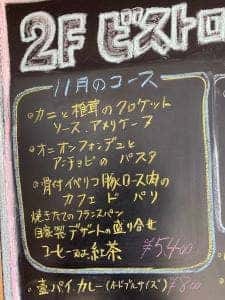 2F ビストロ
11月のコース
・カニと椎茸のクロケット
ソース.アメリケーヌ
・オニオンフォンデュと
アンチョビのパスタ
・骨付イベリコ豚ロース肉の
カフェ ド パリ
焼きたてのフランスパン
自家製デザートの盛り合せ
コーヒー又は紅茶
¥5,400
・壺パイ.カレー(オードブルサイズ)